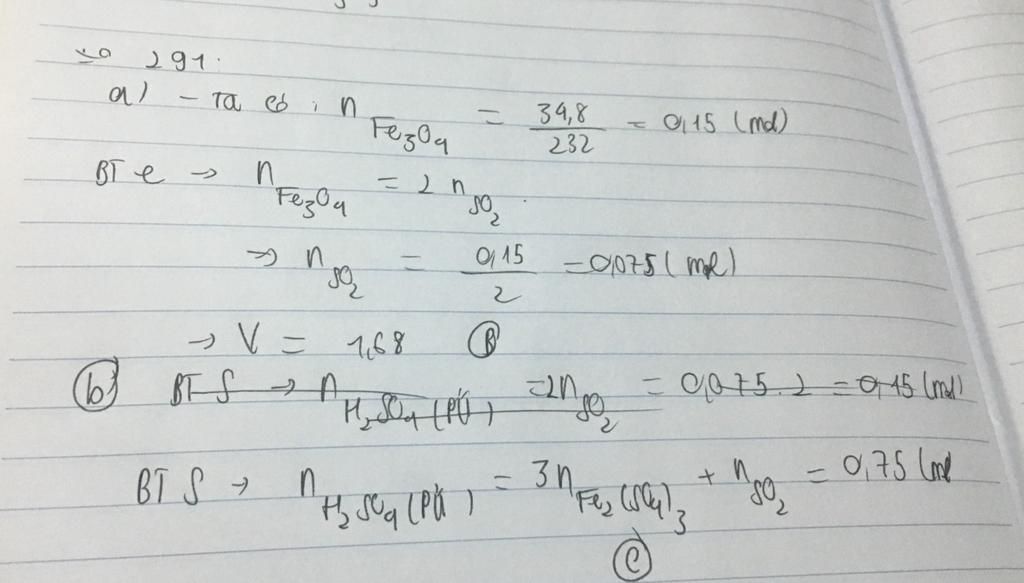 291.
a) - Ta có: n Fe3O4 = 34,8/232 = 0,15 (mol)
BT e → n Fe3O4 = 2 n SO2
→ n SO2 = 0,15/2 = 0,075 (mol)
→ V = 1,68 (B)
(b) BT S → n H2SO4 (PƯ) = 2n SO2 = 0,075.2 = 0,15 (mol)
BT S → n H2SO4 (PƯ) = 3n Fe2(SO4)3 + n SO2 = 0,75 (mol
(C)